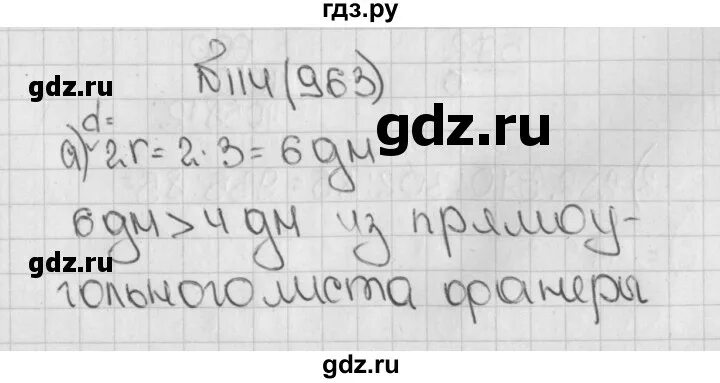 гдз.ру
gdz.ru
№114(963)
d=
gdz.ru
а) 2r = 2·3 = 6 дм
6 дм > 4 дм из прямоу-
gdz.ru
гольного листа фанеры
gdz.ru